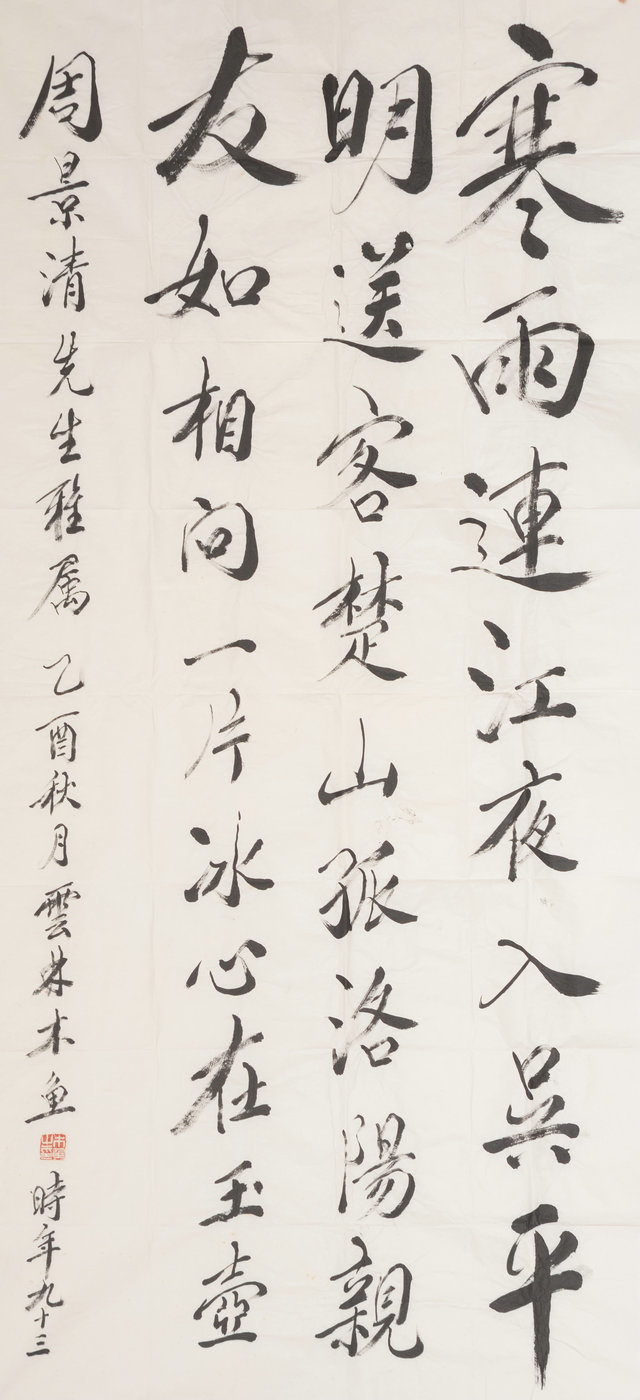 寒雨連江夜入吳平
明送客楚山孤洛陽親
友如相问一片冰心在玉壺
周景清先生雅属 乙酉秋月雲林木鱼 時年九十三